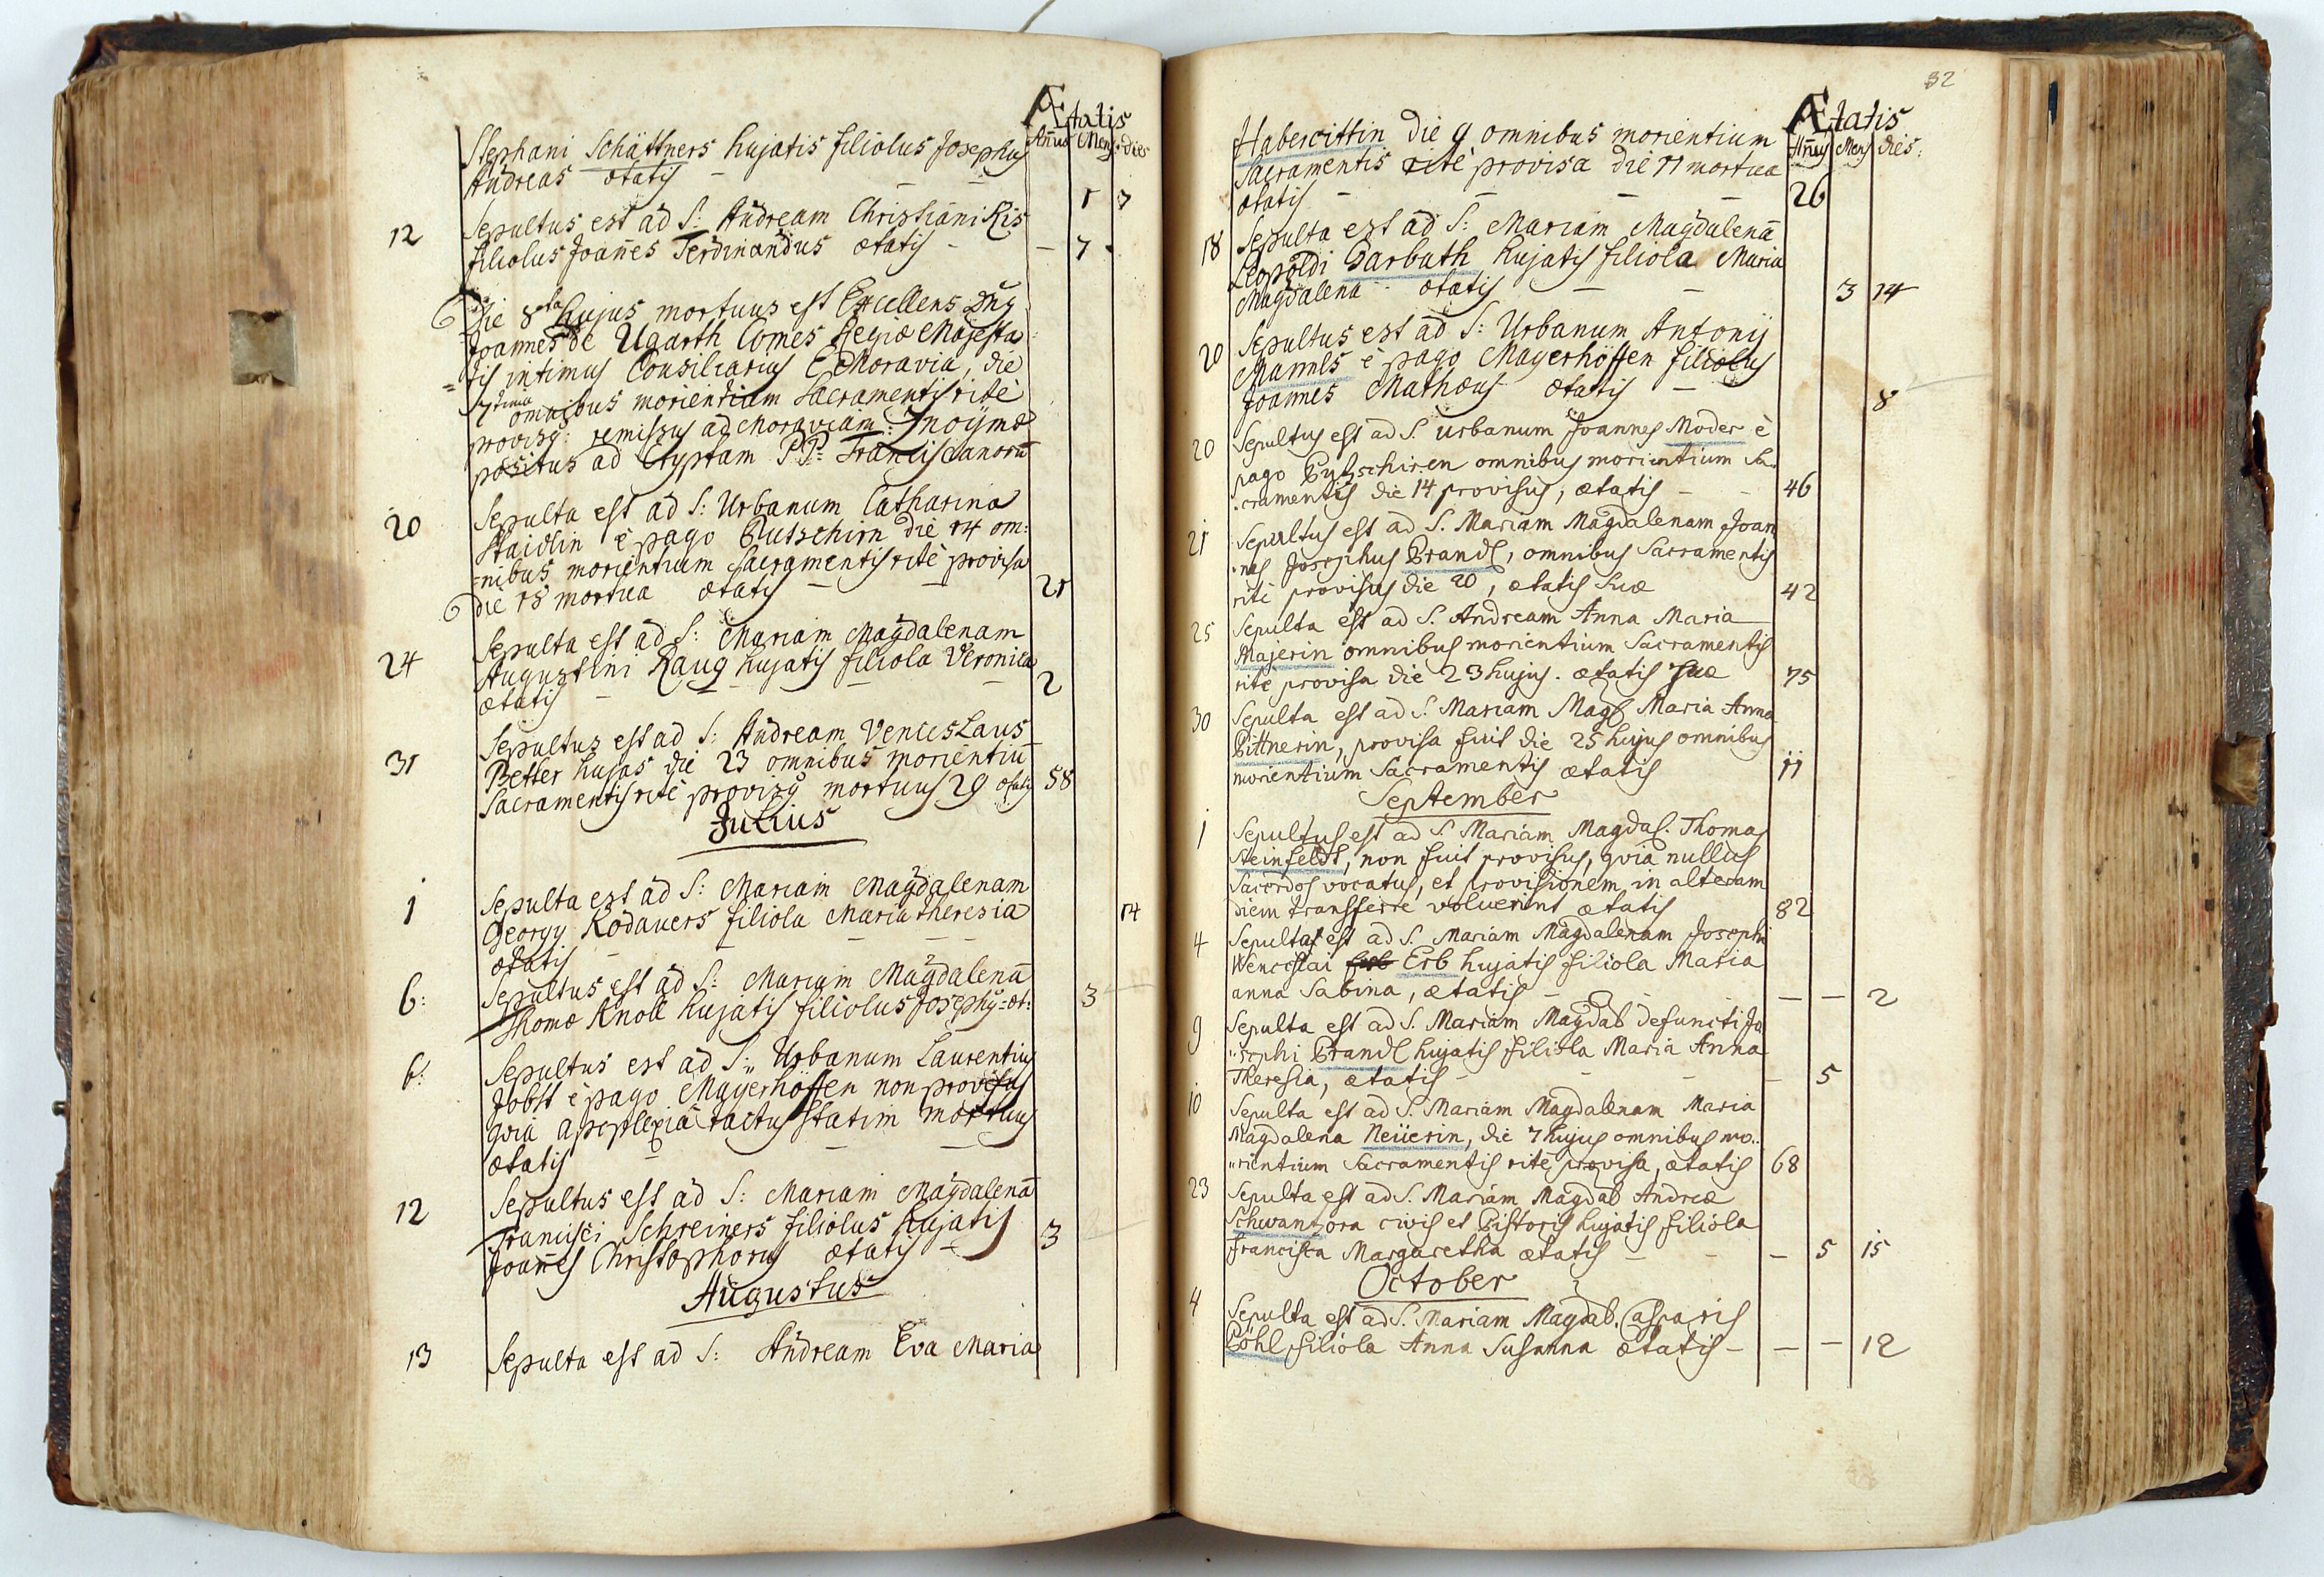 Ætatis
Annus Mens: dies
Stephani Schättners hujatis filiolus Josephus
Andreas ætatis – – – 1 7
12 Sepultus est ad S: Andream Christiani Ris
filiolus Joañes Ferdinandus ætatis – – 7 .
Die 8va hujus mortuus est Excellens Dnꝰ
Joannes de Ugarth Comes Regiæ Majesta
=tis intimus Consiliarius E Moravia, die
7tima omnibus morientium Sacramentis rite
provisꝰ: remissus ad Moraviam: Znoijmæ
positus ad Cryptam P.P: Franciscanorū
20 Sepulta est ad S: Urbanum Catharina
Staidlin è pago Putschirn die 14 om:
=nibus morientium Sacramentis ritè provisa
die 18 mortua ætatis – – 21
24 Sepulta est ad S: Mariam Magdalenam
Augustini Raug hujatis filiola Veronica
ætatis – – – – 2
31 Sepultus est ad S: Andream Venceslaus
Better hujas die 23 omnibus morientiū
Sacramentis rite provisꝰ mortuus 29 ætatis 58
Julius
1 Sepulta est ad S: Mariam Magdalenam
Georgy Rodauers filiola Maria Theresia 14
ætatis – – – –
6: Sepultus est ad S: Mariam Magdalenā
Thomæ Knoll hujatis filiolus Josephꝰ=æt: 3
6: Sepultus est ad S: Urbanum Laurentius
Jobst è pago Mayerhöffen non provisus
qvia apoplexia tactus statim mortuus
ætatis – – –
12 Sepultus est ad S: Mariam Magdalenā
Francisci Schreiners filiolus hujatis
Joañes Christophorus ætatis – 3
Augustus
13 Sepulta est ad S: Andream Eva Maria
32
Ætatis
Añus Mens dies:
Habercittin die 9 omnibus morientium
Sacramentis ritè provisa die 11 mortua
ætatis – – – – 26
18 Sepulta est ad S: Mariam Magdalenā
Leopoldi Barbuth hujatis filiola Maria
Magdalena ætatis – – 3 14
20 Sepultus est ad S: Urbanum Antonij
Mannls è pago Mayerhöffen filiolus
Joannes Mathæus ætatis – 8
20 Sepultus est ad S. Urbanum Joannes Moder è
pago Putschiren omnibus morientium Sa:
:cramentis die 14 provisus, ætatis – – 46
21 Sepultus est ad S. Mariam Magdalenam Joan
:nes Josephus Brandl, omnibus Sacramentis
ritè provisus die 20, ætatis suæ 42
25 Sepulta est ad S. Andream Anna Maria
Majerin omnibus morientium Sacramentis
ritè provisa die 23 hujus. ætatis suæ 75
30 Sepulta est ad S. Mariam Magd Maria Anna
Bittnerin, provisa fuit die 25 hujus omnibus
morientium Sacramentis ætatis 11
September
1 Sepultus est ad S. Mariam Magdal. Thomas
Steinfeldt, non fuit provisus, qvia nullus
Sacerdos vocatus, et provisionem in alteram
diem transferre voluerint ætatis 82
4 Sepulta est ad S. Mariam Magdalenam Josephi
Wenceslai Erb hujatis filiola Maria
anna Sabina, ætatis – – – – – 2
9 Sepulta est ad S. Mariam Magdal defuncti Jo
"sephi Brandl hujatis filiola Maria Anna
Theresia, ætatis – – – – 5
10 Sepulta est ad S. Mariam Magdalenam Maria
Magdalena Neüerin, die 7 hujus omnibus mo:
"rientium Sacramentis ritè provisa, ætatis 68
23 Sepulta est ad S. Mariam Magdal Andreæ
Schwanzora civis et Pistoris hujatis filiola
Francisca Margaretha ætatis – – – 5 15
October
4 Sepulta est ad S. Mariam Magdal. Casparis
Pöhl filiola Anna Susanna ætatis – – – 12